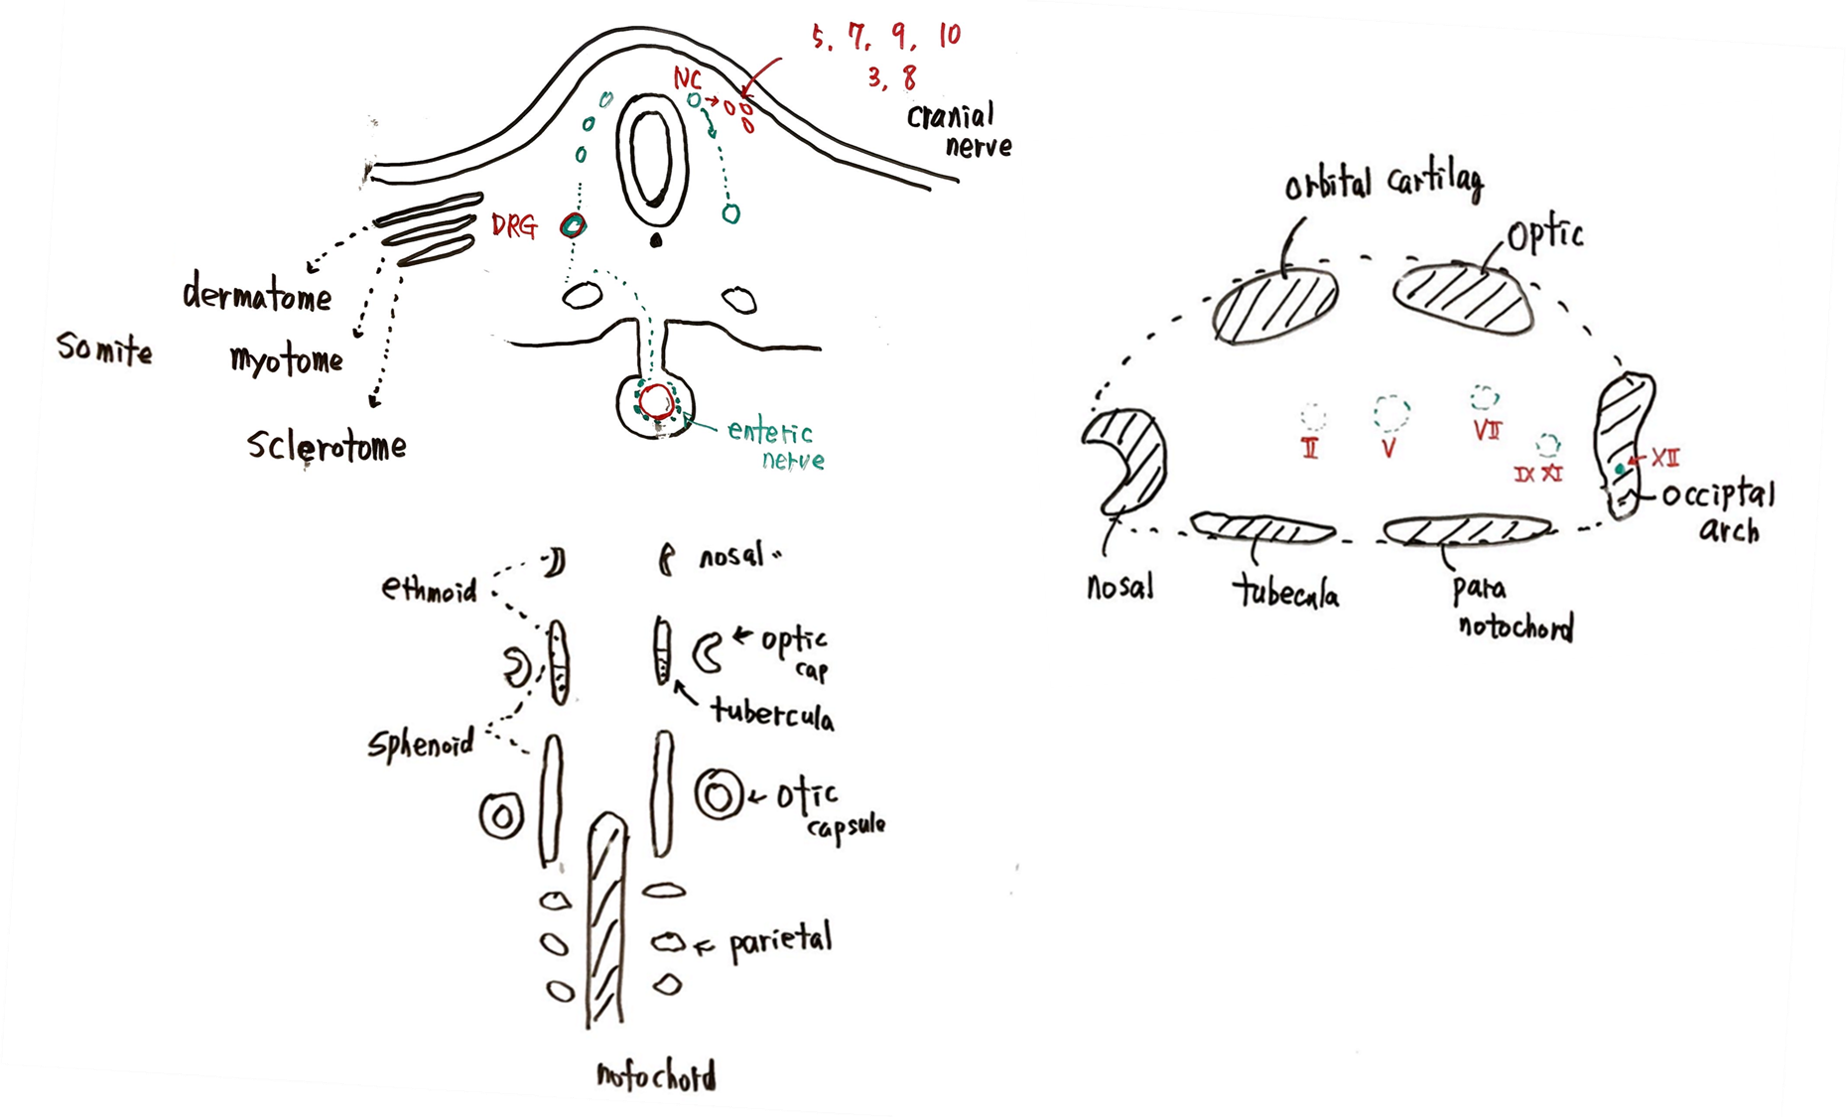 5, 7, 9, 10
3, 8
cranial
nerve
NC
DRG
dermatome
Somite
myotome
sclerotome
enteric
nerve
ethmoid
nosal
optic
cap
tubercula
sphenoid
otic
capsule
parietal
notochord
orbital cartilag
optic
II
V
VII
IX XI
XII
occiptal
arch
nosal
tubecula
para
notochord